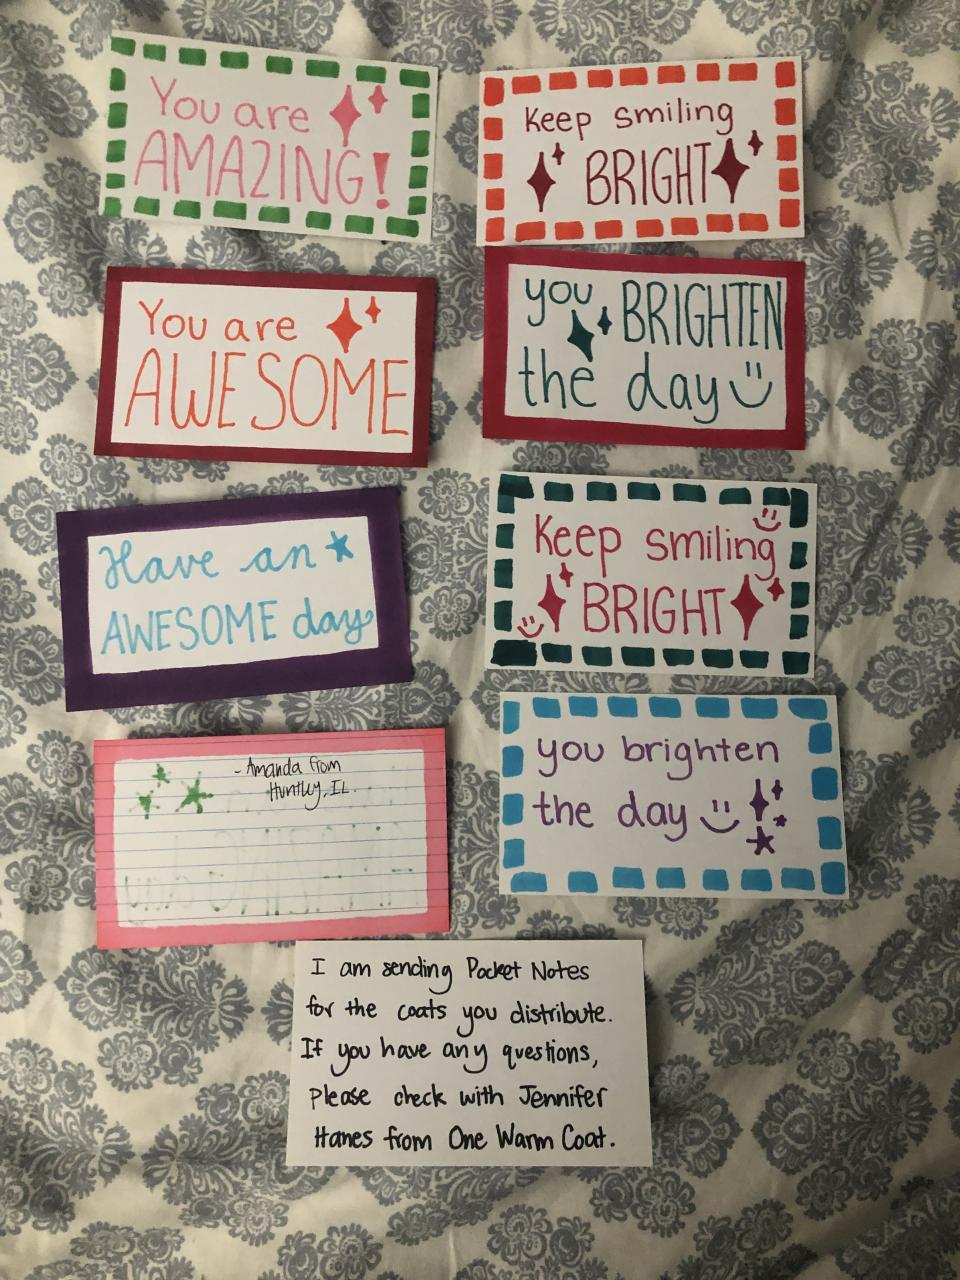 You are
AMAZING!
Keep smiling
BRIGHT
You are
AWESOME
you BRIGHTEN
the day
Have an
AWESOME day
Keep smiling
BRIGHT
- Amanda from
Huntley, IL.
you brighten
the day
I am sending Pocket Notes
for the coats you distribute.
If you have any questions,
please check with Jennifer
Hanes from One Warm Coat.